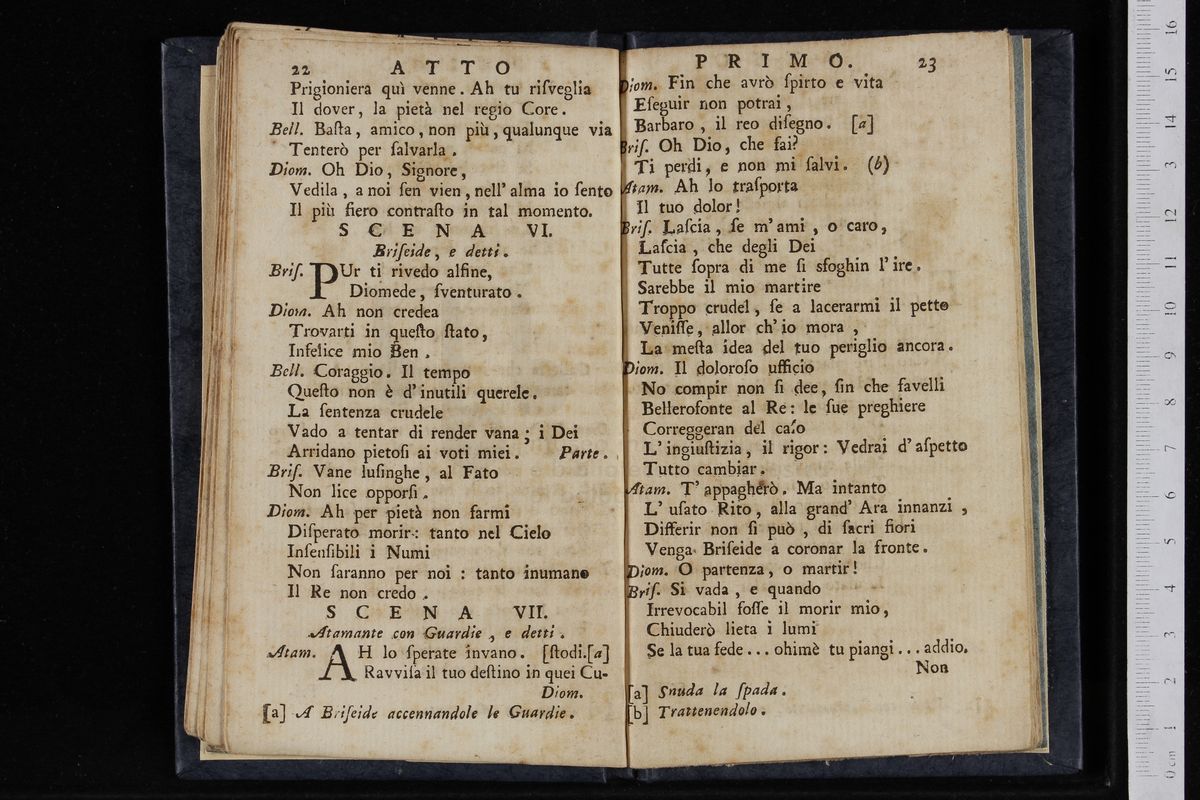 22 ATTO
Prigioniera quì venne. Ah tu riſveglia
Il dover, la pietà nel regio Core.
Bell. Baſta, amico, non più, qualunque via
Tenterò per ſalvarla.
Diom. Oh Dio, Signore,
Vedila, a noi ſen vien, nell' alma io ſento
Il più fiero contraſto in tal momento.
SCENA VI.
Briſeide, e detti.
Briſ. PUr ti rivedo alfine,
Diomede, ſventurato.
Diom. Ah non credea
Trovarti in queſto ſtato,
Infelice mio Ben.
Bell. Coraggio. Il tempo
Queſto non è d' inutili querele.
La ſentenza crudele
Vado a tentar di render vana; i Dei
Arridano pietoſi ai voti miei. Parte.
Briſ. Vane luſinghe, al Fato
Non lice opporſi.
Diom. Ah per pietà non farmi
Diſperato morir: tanto nel Cielo
Inſenſibili i Numi
Non ſaranno per noi: tanto inumano
Il Re non credo.
SCENA VII.
Atamante con Guardie, e detti.
Atam. AH lo ſperate invano. [ſtodi.[a]
Ravviſa il tuo deſtino in quei Cu-
Diom.
[a] A Briſeide accennandole le Guardie.
PRIMO. 23
Diom. Fin che avrò ſpirto e vita
Eſeguir non potrai,
Barbaro, il reo diſegno. [a]
Briſ. Oh Dio, che fai?
Ti perdi, e non mi ſalvi. (b)
Atam. Ah lo traſporta
Il tuo dolor!
Briſ. Laſcia, ſe m' ami, o caro,
Laſcia, che degli Dei
Tutte ſopra di me ſi sfoghin l' ire.
Sarebbe il mio martire
Troppo crudel, ſe a lacerarmi il petto
Veniſſe, allor ch' io mora,
La meſta idea del tuo periglio ancora.
Diom. Il doloroſo ufficio
No compir non ſi dee, ſin che favelli
Bellerofonte al Re: le ſue preghiere
Correggeran del caſo
L' ingiuſtizia, il rigor: Vedrai d' aſpetto
Tutto cambiar.
Atam. T' appagherò. Ma intanto
L' uſato Rito, alla grand' Ara innanzi,
Differir non ſi può, di ſacri fiori
Venga Briſeide a coronar la fronte.
Diom. O partenza, o martir!
Briſ. Si vada, e quando
Irrevocabil foſſe il morir mio,
Chiuderò lieta i lumi
Se la tua fede... ohimè tu piangi... addio.
Non
[a] Snuda la ſpada.
[b] Trattenendolo.
0 cm 1 2 3 4 5 6 7 8 9 10 11 12 13 14 15 16